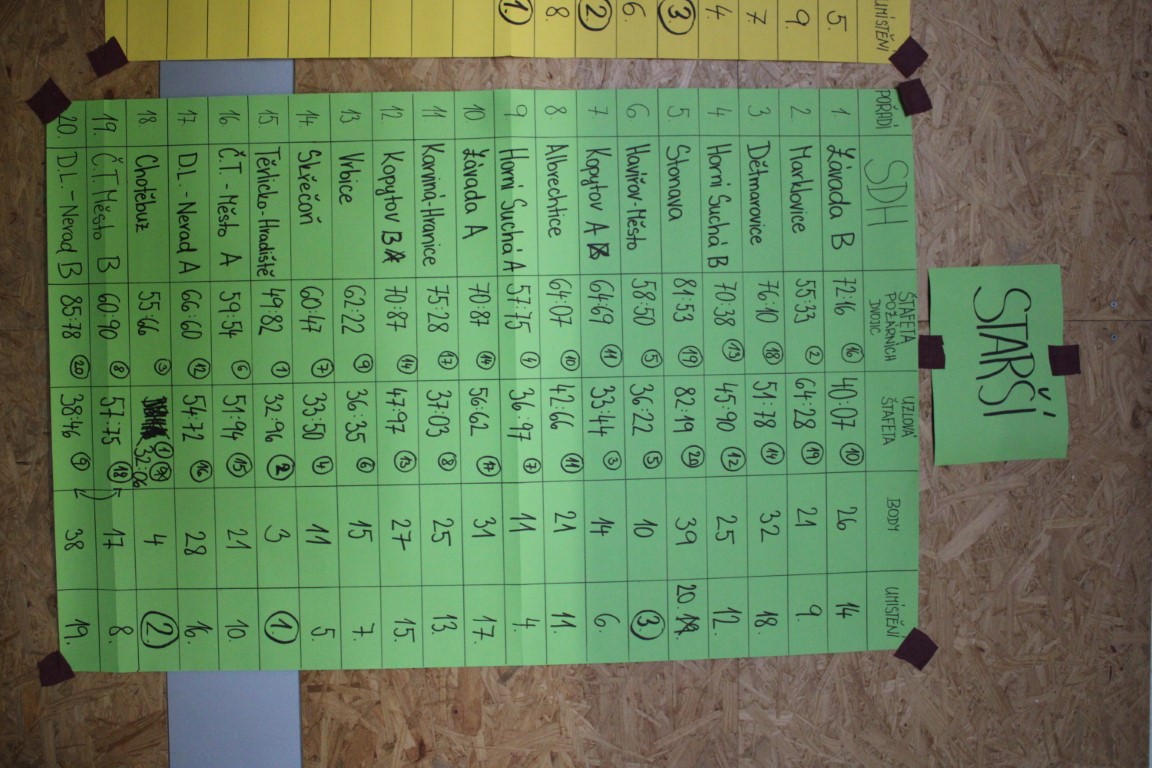 UMÍSTĚNÍ
5.
9.
7.
4.
3.
6.
2.
8.
1.
STARŠÍ
POŘADÍ SDH ŠTAFETA POŽÁRNÍCH DVOJIC UZLOVÁ ŠTAFETA BODY UMÍSTĚNÍ
1. Závada B 72:16 16 40:07 10 26 14.
2. Marklovice 55:33 2 64:28 19 21 9.
3 Dětmarovice 76:10 18 51:78 14 32 18.
4 Horní Suchá B 70:38 13 45:90 12 25 12.
5 Stonava 81:53 19 82:19 20 39 20.
6 Havířov-Město 58:50 5 36:22 5 10 3.
7 Kopytov A 64:69 11 33:44 3 14 6.
8 Albrechtice 64:07 10 42:66 11 21 11.
9 Horní Suchá A 57:75 4 36:97 7 11 4.
10 Závada A 70:87 14 56:62 17 31 17.
11 Karviná-Hranice 75:28 17 37:03 8 25 13.
12. Kopytov B 70:87 14 47:97 13 27 15.
13 Vrbice 62:22 9 36:35 6 15 7.
14 Skřečoň 60:47 7 33:50 4 11 5.
15. Těrlicko-Hradiště 49:82 1 32:96 2 3 1.
16 Č.T.-Město A 59:54 6 51:94 15 21 10.
17 D.L.-Nerad A 66:60 12 54:72 16 28 16.
18 Chotěbuz 55:66 3 32:06 1 4 2.
19. Č.T. Město B 60:90 8 57:75 18 17 8.
20. D.L.-Nerad B 85:78 20 38:46 9 38 19.